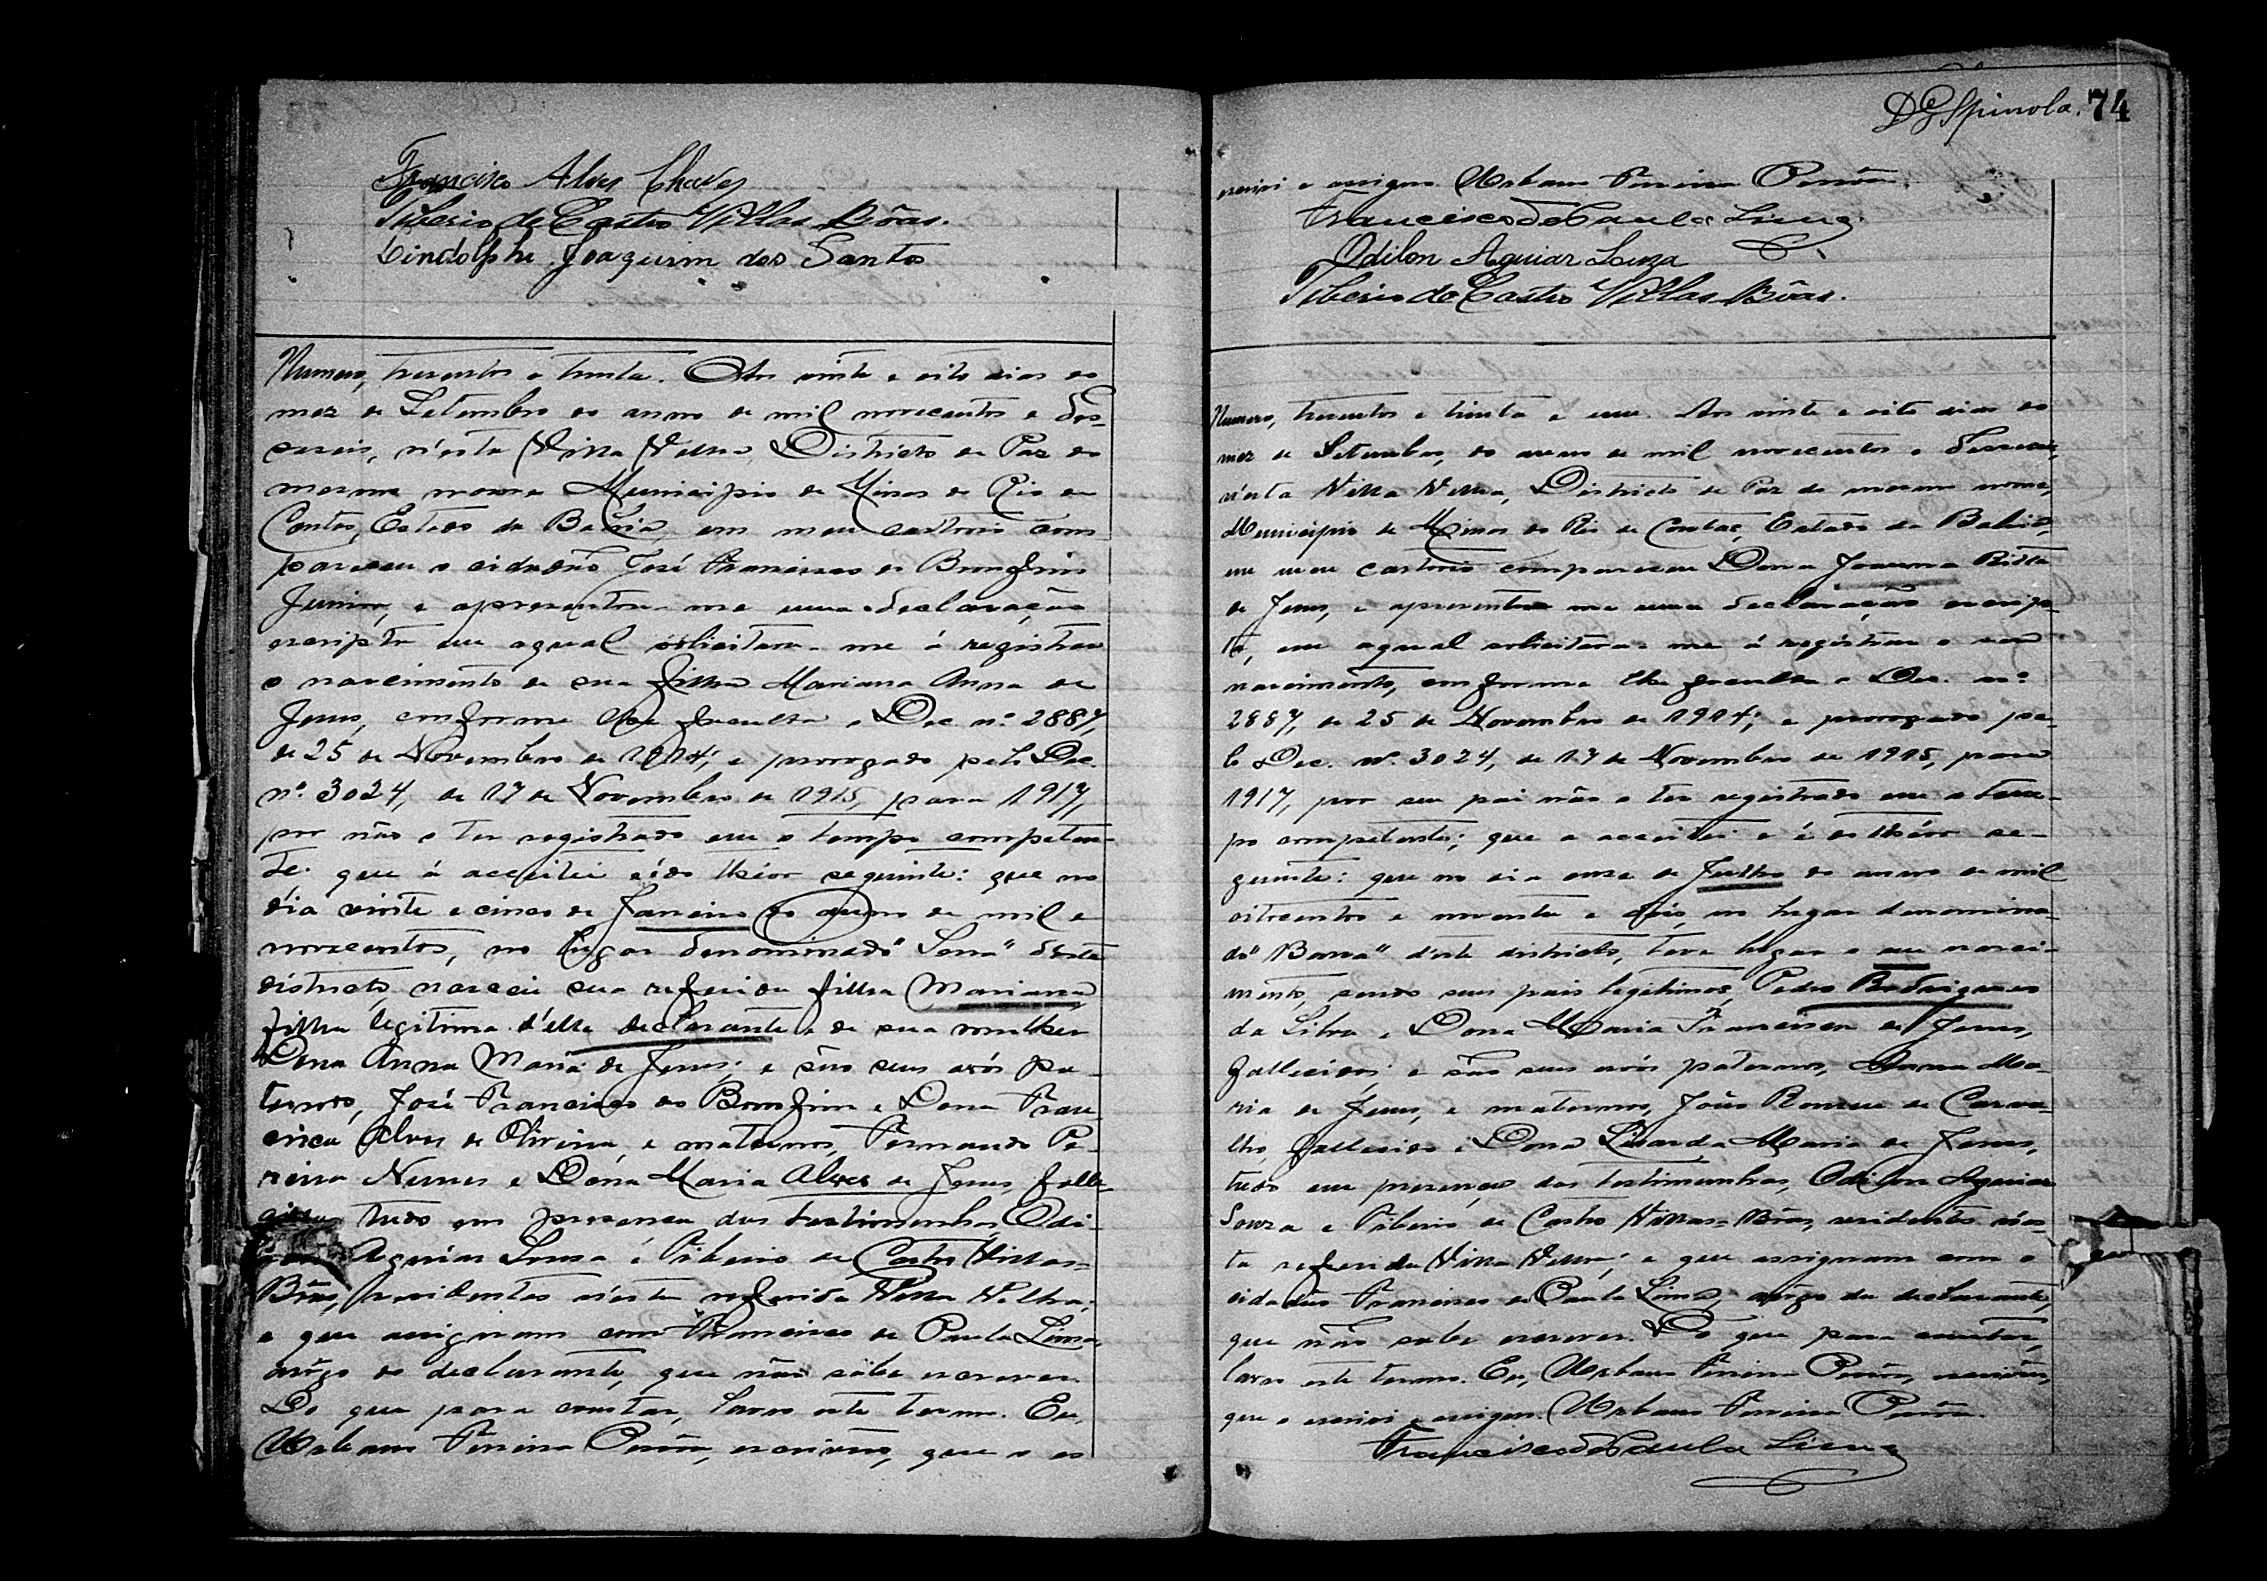 Francisco Alves Chaves
Tiberio de Castro Villas Bôas.
Lindolpho Joaquim dos Santos
Numero, tresentos e trinta. Aos vinte e oito dias do
mez de Setembro do anno de mil novecentos e des-
eseis, n'esta Villa Velha, Districto de Paz do
mesmo nome Municipio de Minas do Rio de
Contas, Estado da Bahia, em meu cartorio com
pareceu o cidadão José Francisco do Bomfim
Junior, e apresentou-me uma declaração
escripta em a qual solicitava-me á registrar
o nascimento de sua filha Mariana Anna de
Jesus, conforme lhe faculta o Dec nº 2887,
de 25 de Novembro de 1914; e prorogado pelo Dec.
nº. 3024, de 17 de Novembro de 1915, para 1917,
por não o ter registrado em o tempo competen-
te. que á acceitei e é do theor seguinte: que no
dia vinte e cinco de Janeiro do anno de mil e
novecentos, no lugar denominado "Serra" d'este
districto, nasceu sua referida filha Mariana,
filha legitima d'elle declarante e de sua mulher
Dona Anna Maria de Jesus; e são seus avós pa-
ternos, José Francisco do Bomfim e Dona Fran
cisca Alves de Oliveira, e maternos, Fernando Pe-
reira Nunes e Dona Maria Alves de Jesus, falle-
tudo em presença das testimunhas, Odi-
Aguiar Sousa e Tiberio de Castro Villas-
Bôas, residentes n'esta referida Villa Velha;
e que assignam com Francisco de Paula Lima,
arôgo do declarante, que não sabe escrever.
Do que para constar, lavro este termo. Eu,
Urbano Pereira, escrivão, que o es
D Espinola. 74
crevi e assigno. Urbano Pereira
Francisco de Paula Lima
Odilon Aguiar Souza
Tiberio de Castro Villas Bôas.
Numero, tresentos e trinta e um. Aos vinte e oito dias do
mez de Setembro, do anno de mil novecentos e deseseis,
n'esta Villa Velha, Districto de Paz do mesmo nome,
Municipio de Minas do Rio de Contas, Estado da Bahia,
em meu cartorio compareceu Dona Joanna Ritta
de Jesus, e apresentou me uma declaração escrip-
ta, em a qual solicitava-me á registrar o seu
nascimento, conforme lhe faculta o Dec. nº
2887, de 25 de Novembro de 1914; e prorogado pe-
lo Dec. nº. 3024, de 17 de Novembro de 1915, para
1917, por seu pai não o ter registrado em o tem-
po competente; que a acceitei e é do theor se-
guinte: que no dia onze de Julho do anno de mil
oitocentos e noventa e dois, no lugar denomina-
do "Barra" d'este districto, teve lugar o seu nasci-
mento, sendo seus pais legitimos, Pedro Rodrigues
da Silva e Dona Maria Francisca de Jesus,
fallecidos; e são seus avós paternos, Anna Ma-
ria de Jesus, e maternos, João Romeu de Carva-
lho, fallecido e Dona Maria de Jesus,
tudo em presença das testimunhas, Odilon Aguiar
Souza e Tiberio de Castro Villas-Bôas, residentes n'es-
ta referida Villa Velha; e que assignam com o
cidadão Francisco de Paula Lima, arôgo da declarante,
que não sabe escrever. Do que para constar,
lavro este termo. Eu, Urbano Pereira, escrivão,
que o escrevi e assigno. Urbano Pereira
Francisco de Paula Lima